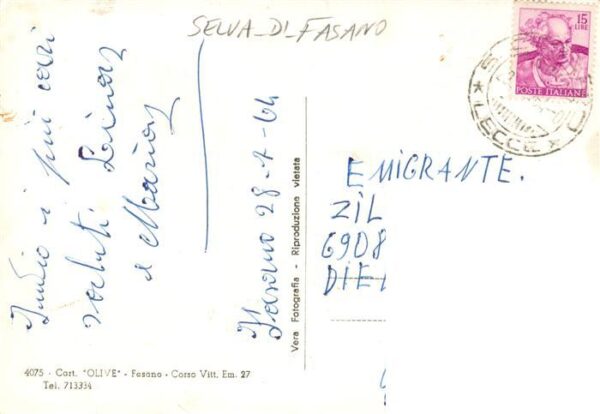 SELVA-DI-FASANO
15
LIRE
POSTE ITALIANE
LECCE
Invio i più cari
saluti
e Maria
Fasano 28-7-64
Vera Fotografia - Riproduzione vietata
EMIGRANTE.
ZIL
6908
DIE
4075 - Cart. "OLIVE" - Fasano - Corso Vitt. Em. 27
Tel. 713334